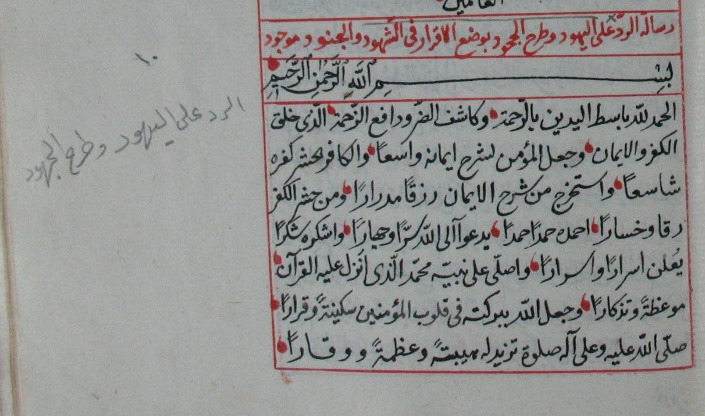 العالمين
رسالة الرد على اليهود وطرح الجحود بوضع الاقرار في الشهود والجنود موجود
بسم الله الرحمن الرحيم
الحمد لله باسط اليدين بالرحمة وكاشف الضر ودافع الزحمة الذي خلق
الكفر والايمان وجعل المؤمن لشرح ايمانه واسعاً والكافر بحشر كفره
شاسعاً واستخرج من شرح الايمان رزقاً مدراراً ومن حشر الكفر
رقا وخساراً احمده حمداً احمدا يدعوا الى الله سرّاً وجهاراً واشكره شكرًا
يُعلن اسرارًا وأسرارًا واصلّي على نبيّه محمّد الذي انُزل عليه القرآن
موعظةً وتذكارًا وجعل الله ببركته في قلوب المؤمنين سكينةً وقرارًا
صلّى الله عليه وعلى آله صلوة تزيد له هيبتةً وعظمةً ووقارًا
١٠
الرد على اليهود وطرح الجهود